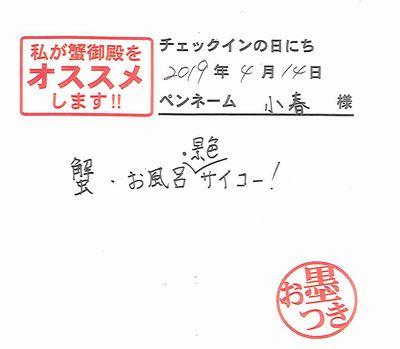 私が蟹御殿を
オススメ
します!!
チェックインの日にち
2019年4月14日
ペンネーム 小春 様
蟹・お風呂・景色サイコー!
お墨つき